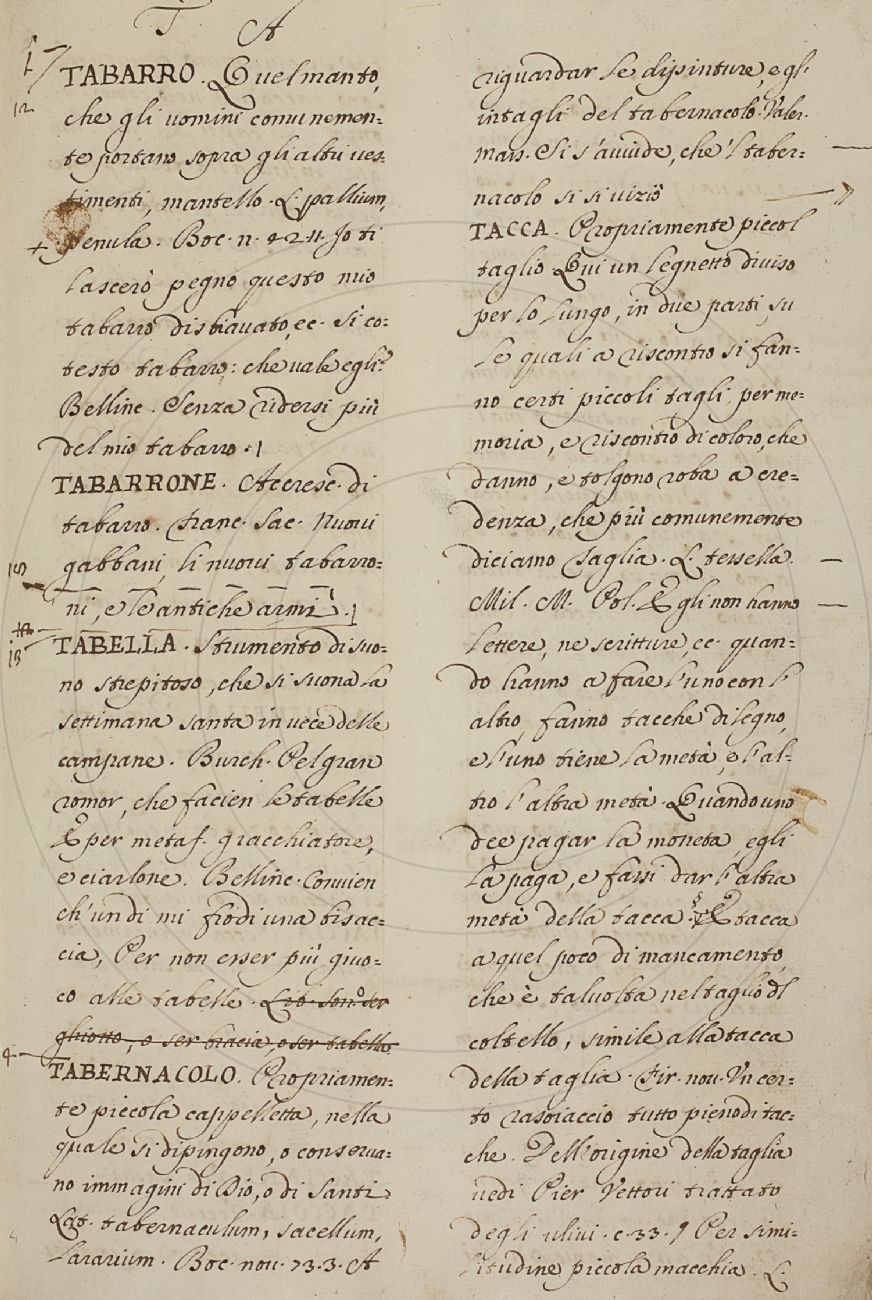 T A
TABARRO. Quel manto,
che gli uomini comunemen:
te portano sopra gli altri ves:
timenti, mantello. L. pallium,
penula. Boc. n. 72. 11. Io ti
lascerò pegno questo mio
tabarro disbiavato, ec. Sì co:
testo tabarro: che vale egli?
Bellinc. Senza ridersi più
del mio tabarro.
TABARRONE. Accresc. di
tabarro. Franc. Sac. Nuovi
gabbani, li nuovi tabarro:
ni, e le antiche armi.
TABELLA. Strumento di suo:
no strepitoso, che si suona la
settimana santa in vece delle
campane. Burch. Pel gran
romor, che facien le tabelle
E per metaf. gracchiatore,
e ciarlone. Bellinc. Convien
ch'un dì mi frodi una bisac:
cia, Per non esser più giuo:
co alle tabelle. Lib. Son. o ser
ghiotto, o ser bracia, o ser tabella.
TABERNACOLO. Propriamen:
te piccola cappelletta, nella
quale si dipingono, o conserva:
no immagini di Dio, o di Santi
Lat. tabernaculum, sacellum,
lararium. Boc. nov. 73. 3. A
riguardar le dipinture, e gli
intagli del tabernacolo. Valer.
Mass. Si s'avvide, che 'l taber:
nacolo si
TACCA. Propriamente piccol
taglio Qui un legnetto diviso
per lo lungo, in due parti, su
le quali a riscontro si fan:
no certi piccoli tagli, per me:
moria, e riscontro di coloro, che
danno, e tolgono roba a cre:
denza, che più comunemente
diciamo Taglia. L. tessella.
Mil. M. Pol. Egli non hanno
lettere, ne scritture, ec. quan:
do hanno a fare l'uno con l'
altro, fanno tacche di legno,
e l'uno tiene la metà, e l'al-
tro l'altra metà. Quando uno
dee pagar la moneta, egli
la paga, e fassi dar l'altra
metà della tacca. § E tacca
a quel poco di mancamento,
che è talvolta nel taglio dl
coltello, simile alla tacca
della taglia. Fir. nov. Un cer:
to rasoiaccio tutto pieno di tac:
che. Dell'origine della taglia
vedi Pier Vettori trattato
degli ulivi. c. 33. § Per simi:
litudine piccola macchia. L.